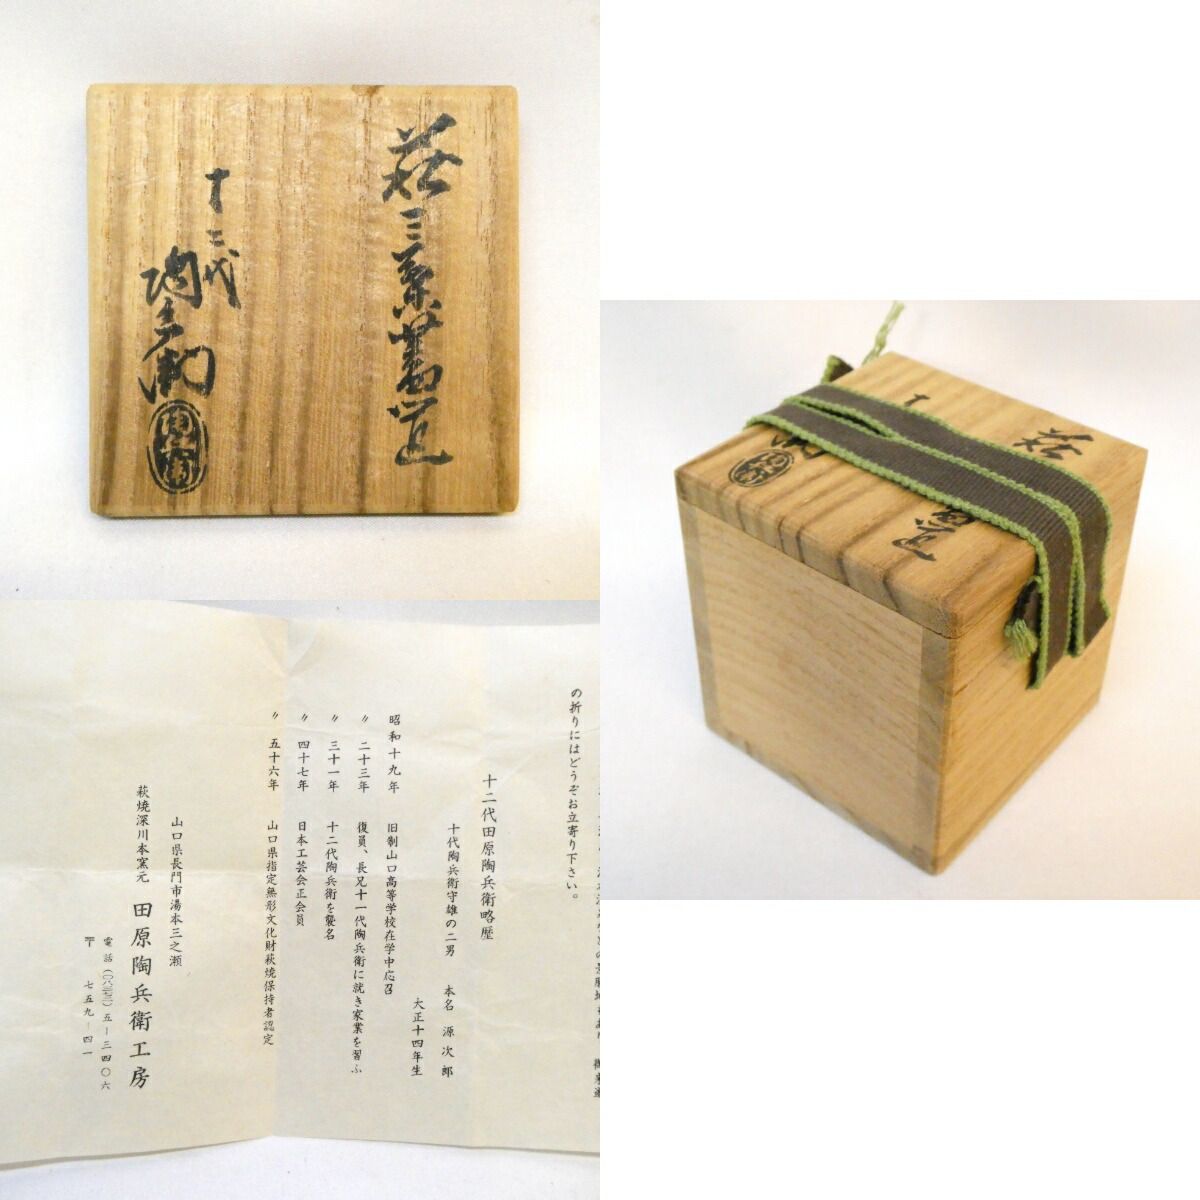 萩三
十二代
陶兵衛
萩
十
の折りにはどうぞお立寄り下さい。
十二代田原陶兵衛略歴
十代陶兵衛守雄の二男 本名 源次郎
大正十四年生
昭和十九年 旧制山口高等学校在学中応召
〃 二十三年 復員、長兄十一代陶兵衛に就き家業を習ふ
〃 三十一年 十二代陶兵衛を襲名
〃 四十七年 日本工芸会正会員
〃 五十六年 山口県指定無形文化財萩焼保持者認定
山口県長門市湯本三之瀬
萩焼深川本窯元 田原陶兵衛工房
電話(〇八三七二)五―三四〇六
〒 七五九―四一